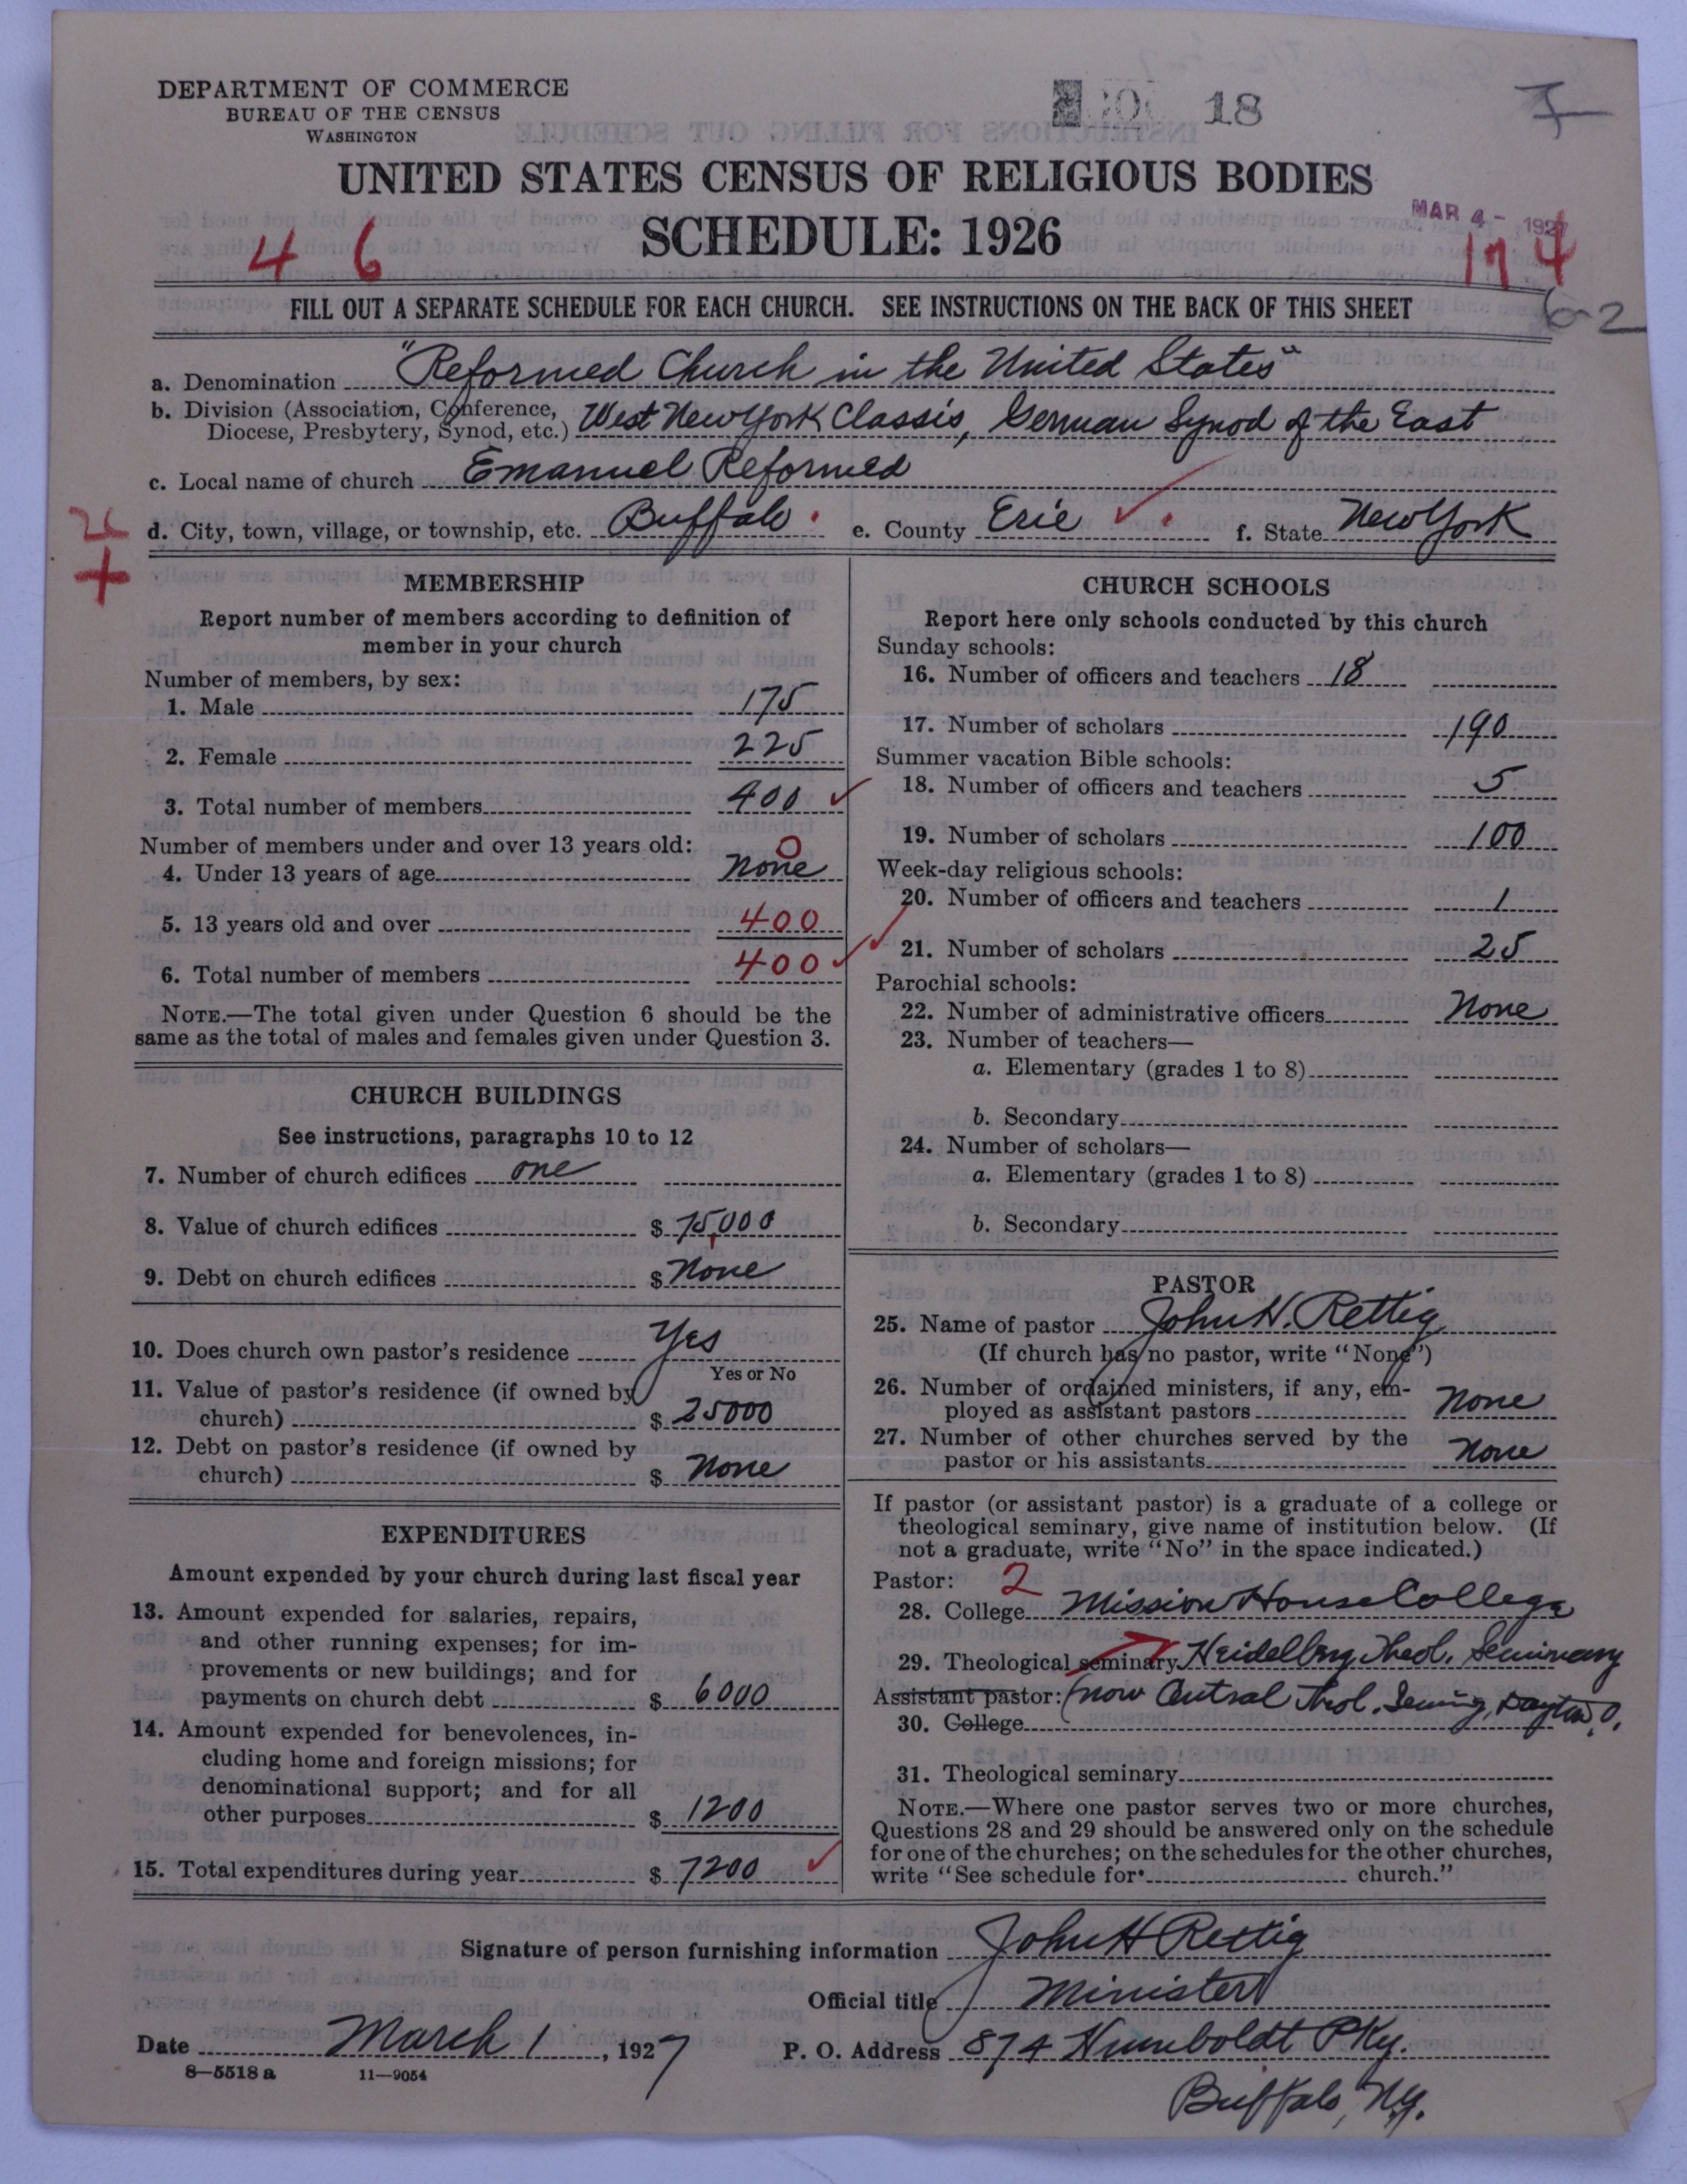 DEPARTMENT OF COMMERCE
BUREAU OF THE CENSUS
WASHINGTON
18
UNITED STATES CENSUS OF RELIGIOUS BODIES
SCHEDULE: 1926
MAR 4 - 1927
4 6
174
6-2
FILL OUT A SEPARATE SCHEDULE FOR EACH CHURCH. SEE INSTRUCTIONS ON THE BACK OF THIS SHEET
a. Denomination "Reformed Church in the United States"
b. Division (Association, Conference,
Diocese, Presbytery, Synod, etc.) West New York Classis, German Synod of the East
c. Local name of church Emanuel Reformed
d. City, town, village, or township, etc. Buffalo. e. County Erie f. State New York
MEMBERSHIP
Report number of members according to definition of
member in your church
Number of members, by sex:
1. Male 175
2. Female 225
3. Total number of members 400
Number of members under and over 13 years old:
0
4. Under 13 years of age none
5. 13 years old and over 400
6. Total number of members 400
NOTE.—The total given under Question 6 should be the
same as the total of males and females given under Question 3.
CHURCH BUILDINGS
See instructions, paragraphs 10 to 12
7. Number of church edifices one
8. Value of church edifices $ 75,000
9. Debt on church edifices $ None
10. Does church own pastor's residence Yes
Yes or No
11. Value of pastor's residence (if owned by
church) $ 25000
12. Debt on pastor's residence (if owned by
church) $ None
EXPENDITURES
Amount expended by your church during last fiscal year
13. Amount expended for salaries, repairs,
and other running expenses; for im-
provements or new buildings; and for
payments on church debt $ 6000
14. Amount expended for benevolences, in-
cluding home and foreign missions; for
denominational support; and for all
other purposes $ 1200
15. Total expenditures during year $ 7200
CHURCH SCHOOLS
Report here only schools conducted by this church
Sunday schools:
16. Number of officers and teachers 18
17. Number of scholars 190
Summer vacation Bible schools:
18. Number of officers and teachers 5
19. Number of scholars 100
Week-day religious schools:
20. Number of officers and teachers 1
21. Number of scholars 25
Parochial schools:
22. Number of administrative officers None
23. Number of teachers—
a. Elementary (grades 1 to 8)
b. Secondary
24. Number of scholars—
a. Elementary (grades 1 to 8)
b. Secondary
PASTOR
25. Name of pastor John H. Rettig
(If church has no pastor, write "None")
26. Number of ordained ministers, if any, em-
ployed as assistant pastors None
27. Number of other churches served by the
pastor or his assistants None
If pastor (or assistant pastor) is a graduate of a college or
theological seminary, give name of institution below. (If
not a graduate, write "No" in the space indicated.)
Pastor: 2
28. College Mission House College
29. Theological seminary Heidelberg Theol. Seminary
Assistant pastor: (now Central Theol. Seminy, Dayton, O.
30. College
31. Theological seminary
NOTE.—Where one pastor serves two or more churches,
Questions 28 and 29 should be answered only on the schedule
for one of the churches; on the schedules for the other churches,
write "See schedule for church."
Signature of person furnishing information John H Rettig
Official title Minister
Date March 1, 1927 P. O. Address 874 Humboldt Pky.
8—5518 a 11—9054
Buffalo, N.Y.